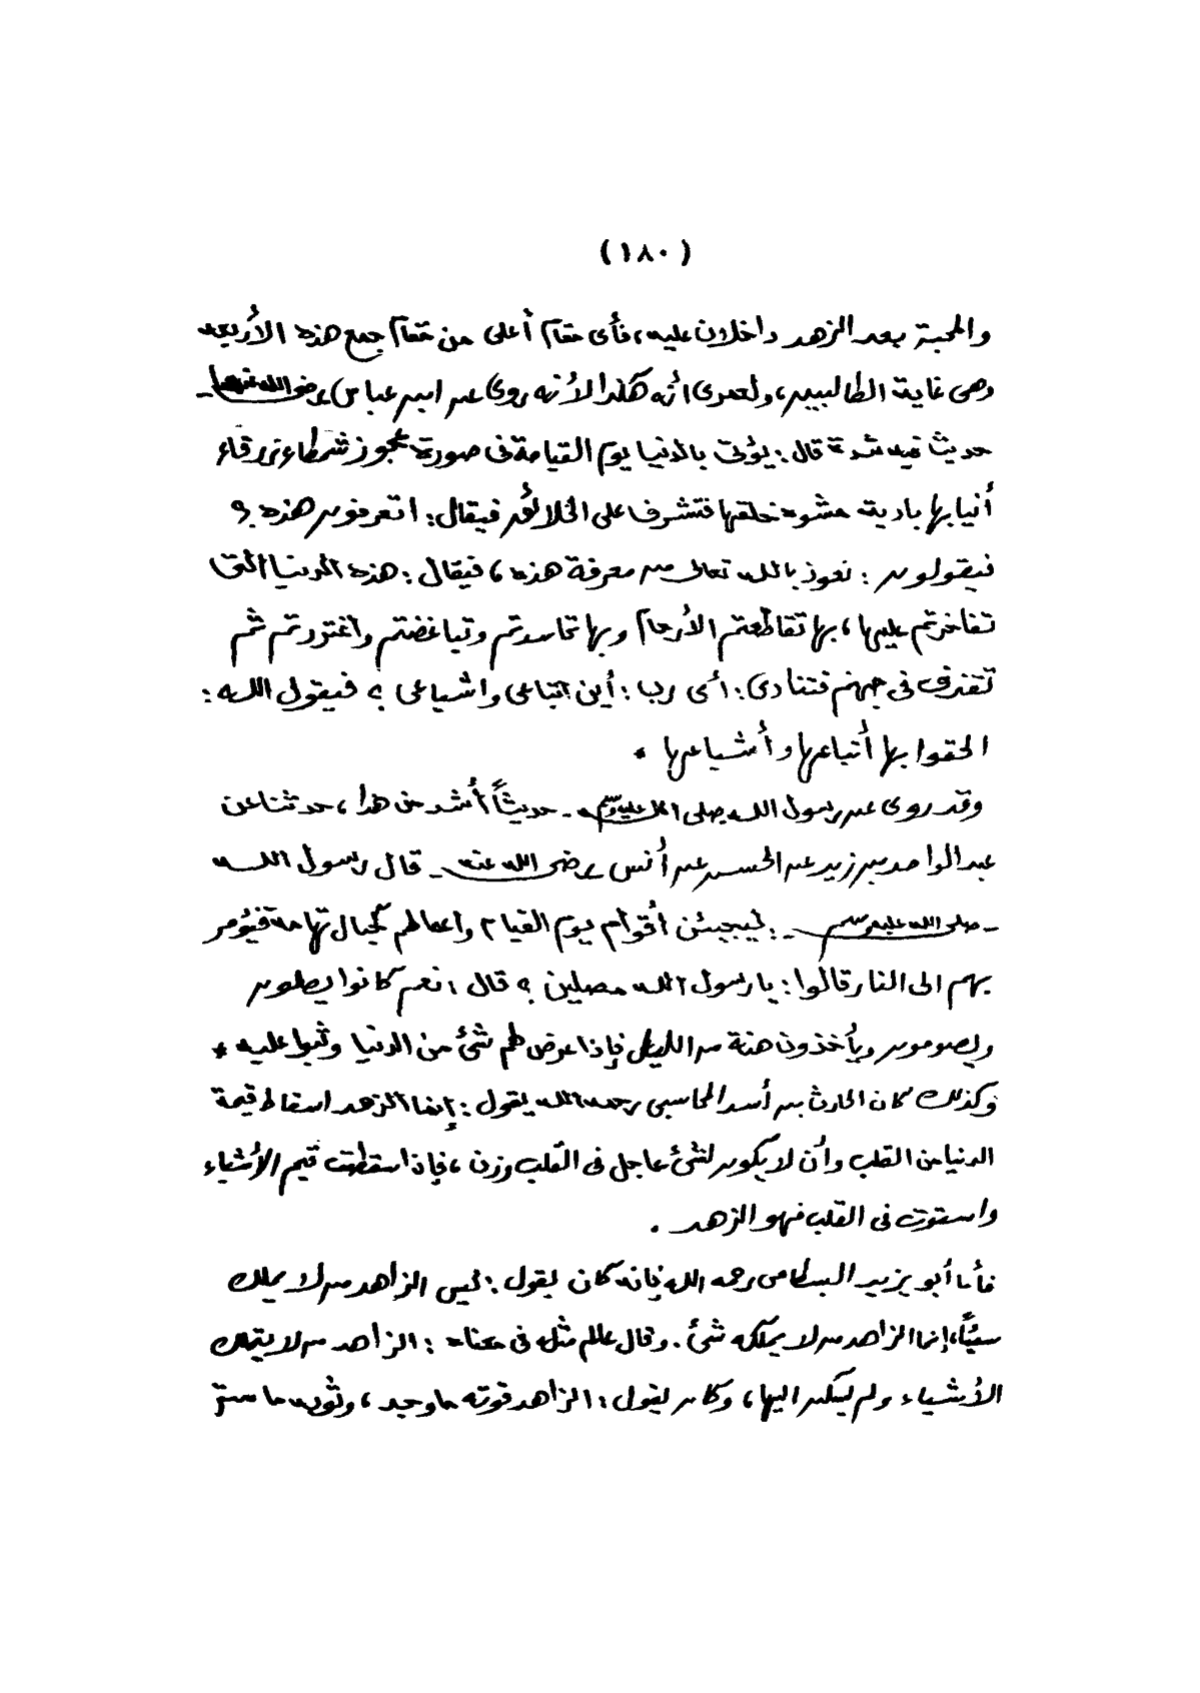 (١٨٠)
والمحبة بعد الزهد داخلان عليه، فأى مقام أعلى من مقام جمع هذه الأربعة
وهى غاية الطالبين، ولعمرى أنه هكذا لأنه روى عن ابن عباس رضى الله عنهما -
حديث فيه شدة قال: يؤتى بالدنيا يوم القيامة فى صورة عجوز شمطاء زرقاء
أنيابها بادية مشوه خلقها فتشرف على الخلائق فيقال: اتعرفون هذه؟
فيقولون: نعوذ بالله تعالى من معرفة هذه، فيقال: هذه الدنيا التى
تفاخرتم عليها، بها تقاطعتم الأرحام وبها تحاسدتم وتباغضتم واغتررتم ثم
تقذف فى جهنم فتنادى: أى رب: أين اتباعى واشياعى؟ فيقول الله:
الحقوا بها أتباعها وأشياعها.
وقد روى عن رسول الله صلى الله عليه وسلم - حديثاً أشد من هذا، حدثنا عن
عبد الواحد بن زيد عن الحسن عن أنس رضى الله عنه - قال رسول الله
- صلى الله عليه وسلم -: ليجيئن أقوام يوم القيام واعمالهم كجبال تهامة فيؤمر
بهم الى النار قالوا: يا رسول الله مصلين؟ قال: نعم كانوا يصلون
ويصومون ويأخذون هنة من الليل فإذا عرض لهم شئ من الدنيا وثبوا عليه.
وكذلك كان الحارث بن أسد المحاسبى رحمه الله يقول: إنما الزهد اسقاط قيمة
الدنيا من القلب وأن لا يكون لشئ عاجل فى القلب وزن، فإذا سقطت قيم الأشياء
واستوت فى القلب فهو الزهد.
فأما أبو يزيد البسطامى رحمه الله فإنه كان يقول: ليس الزاهد من لا يملك
سيئاً، إنما الزاهد من لا يملكه شئ. وقال عالم مثله فى معناه: الزاهد من لا يتملك
الأشياء ولم يسكن اليها، وكان يقول: الزاهد قوته ما وجد، وثوبه ما ستر